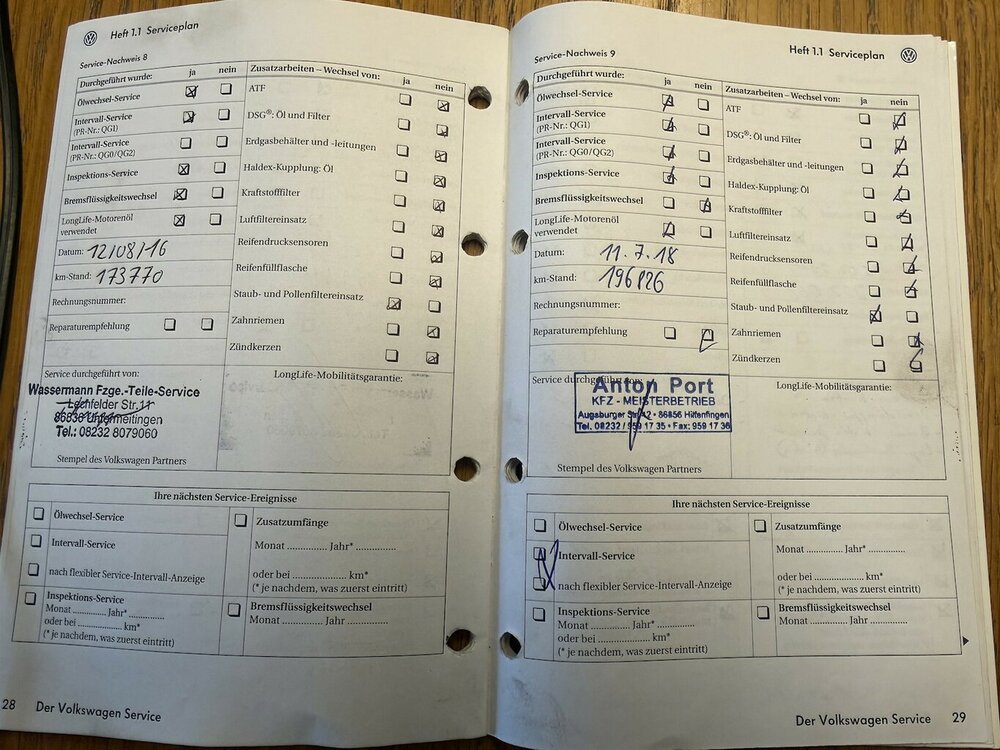 Heft 1.1 Serviceplan
Service-Nachweis 8
Durchgeführt wurde: ja nein
Ölwechsel-Service
Intervall-Service
(PR-Nr.: QG1)
Intervall-Service
(PR-Nr.: QG0/QG2)
Inspektions-Service
Bremsflüssigkeitswechsel
LongLife-Motorenöl
verwendet
Datum: 12/08/16
km-Stand: 173770
Rechnungsnummer:
Reparaturempfehlung
Zusatzarbeiten – Wechsel von: ja nein
ATF
DSG®: Öl und Filter
Erdgasbehälter und -leitungen
Haldex-Kupplung: Öl
Kraftstofffilter
Luftfiltereinsatz
Reifendrucksensoren
Reifenfüllflasche
Staub- und Pollenfiltereinsatz
Zahnriemen
Zündkerzen
Service durchgeführt von:
Wassermann Fzge.-Teile-Service
Lechfelder Str.11
86836 Untermeitingen
Tel.: 08232 8079060
Stempel des Volkswagen Partners
LongLife-Mobilitätsgarantie:
Ihre nächsten Service-Ereignisse
Ölwechsel-Service
Intervall-Service
nach flexibler Service-Intervall-Anzeige
Inspektions-Service
Monat ............ Jahr* ............
oder bei ................ km*
(* je nachdem, was zuerst eintritt)
Zusatzumfänge
Monat ............ Jahr* ............
oder bei ................ km*
(* je nachdem, was zuerst eintritt)
Bremsflüssigkeitswechsel
Monat .......... Jahr ............
28 Der Volkswagen Service
Heft 1.1 Serviceplan
Service-Nachweis 9
Durchgeführt wurde: ja nein
Ölwechsel-Service
Intervall-Service
(PR-Nr.: QG1)
Intervall-Service
(PR-Nr.: QG0/QG2)
Inspektions-Service
Bremsflüssigkeitswechsel
LongLife-Motorenöl
verwendet
Datum: 11.7.18
km-Stand: 196826
Rechnungsnummer:
Reparaturempfehlung
Zusatzarbeiten – Wechsel von: ja nein
ATF
DSG®: Öl und Filter
Erdgasbehälter und -leitungen
Haldex-Kupplung: Öl
Kraftstofffilter
Luftfiltereinsatz
Reifendrucksensoren
Reifenfüllflasche
Staub- und Pollenfiltereinsatz
Zahnriemen
Zündkerzen
Service durchgeführt von:
Anton Port
KFZ - MEISTERBETRIEB
Augsburger Str. 42 • 86856 Hiltenfingen
Tel. 08232 / 959 17 35 • Fax: 959 17 36
Stempel des Volkswagen Partners
LongLife-Mobilitätsgarantie:
Ihre nächsten Service-Ereignisse
Ölwechsel-Service
Intervall-Service
nach flexibler Service-Intervall-Anzeige
Inspektions-Service
Monat ............ Jahr* ............
oder bei ................ km*
(* je nachdem, was zuerst eintritt)
Zusatzumfänge
Monat ............ Jahr* ............
oder bei ................ km*
(* je nachdem, was zuerst eintritt)
Bremsflüssigkeitswechsel
Monat .......... Jahr ............
Der Volkswagen Service 29